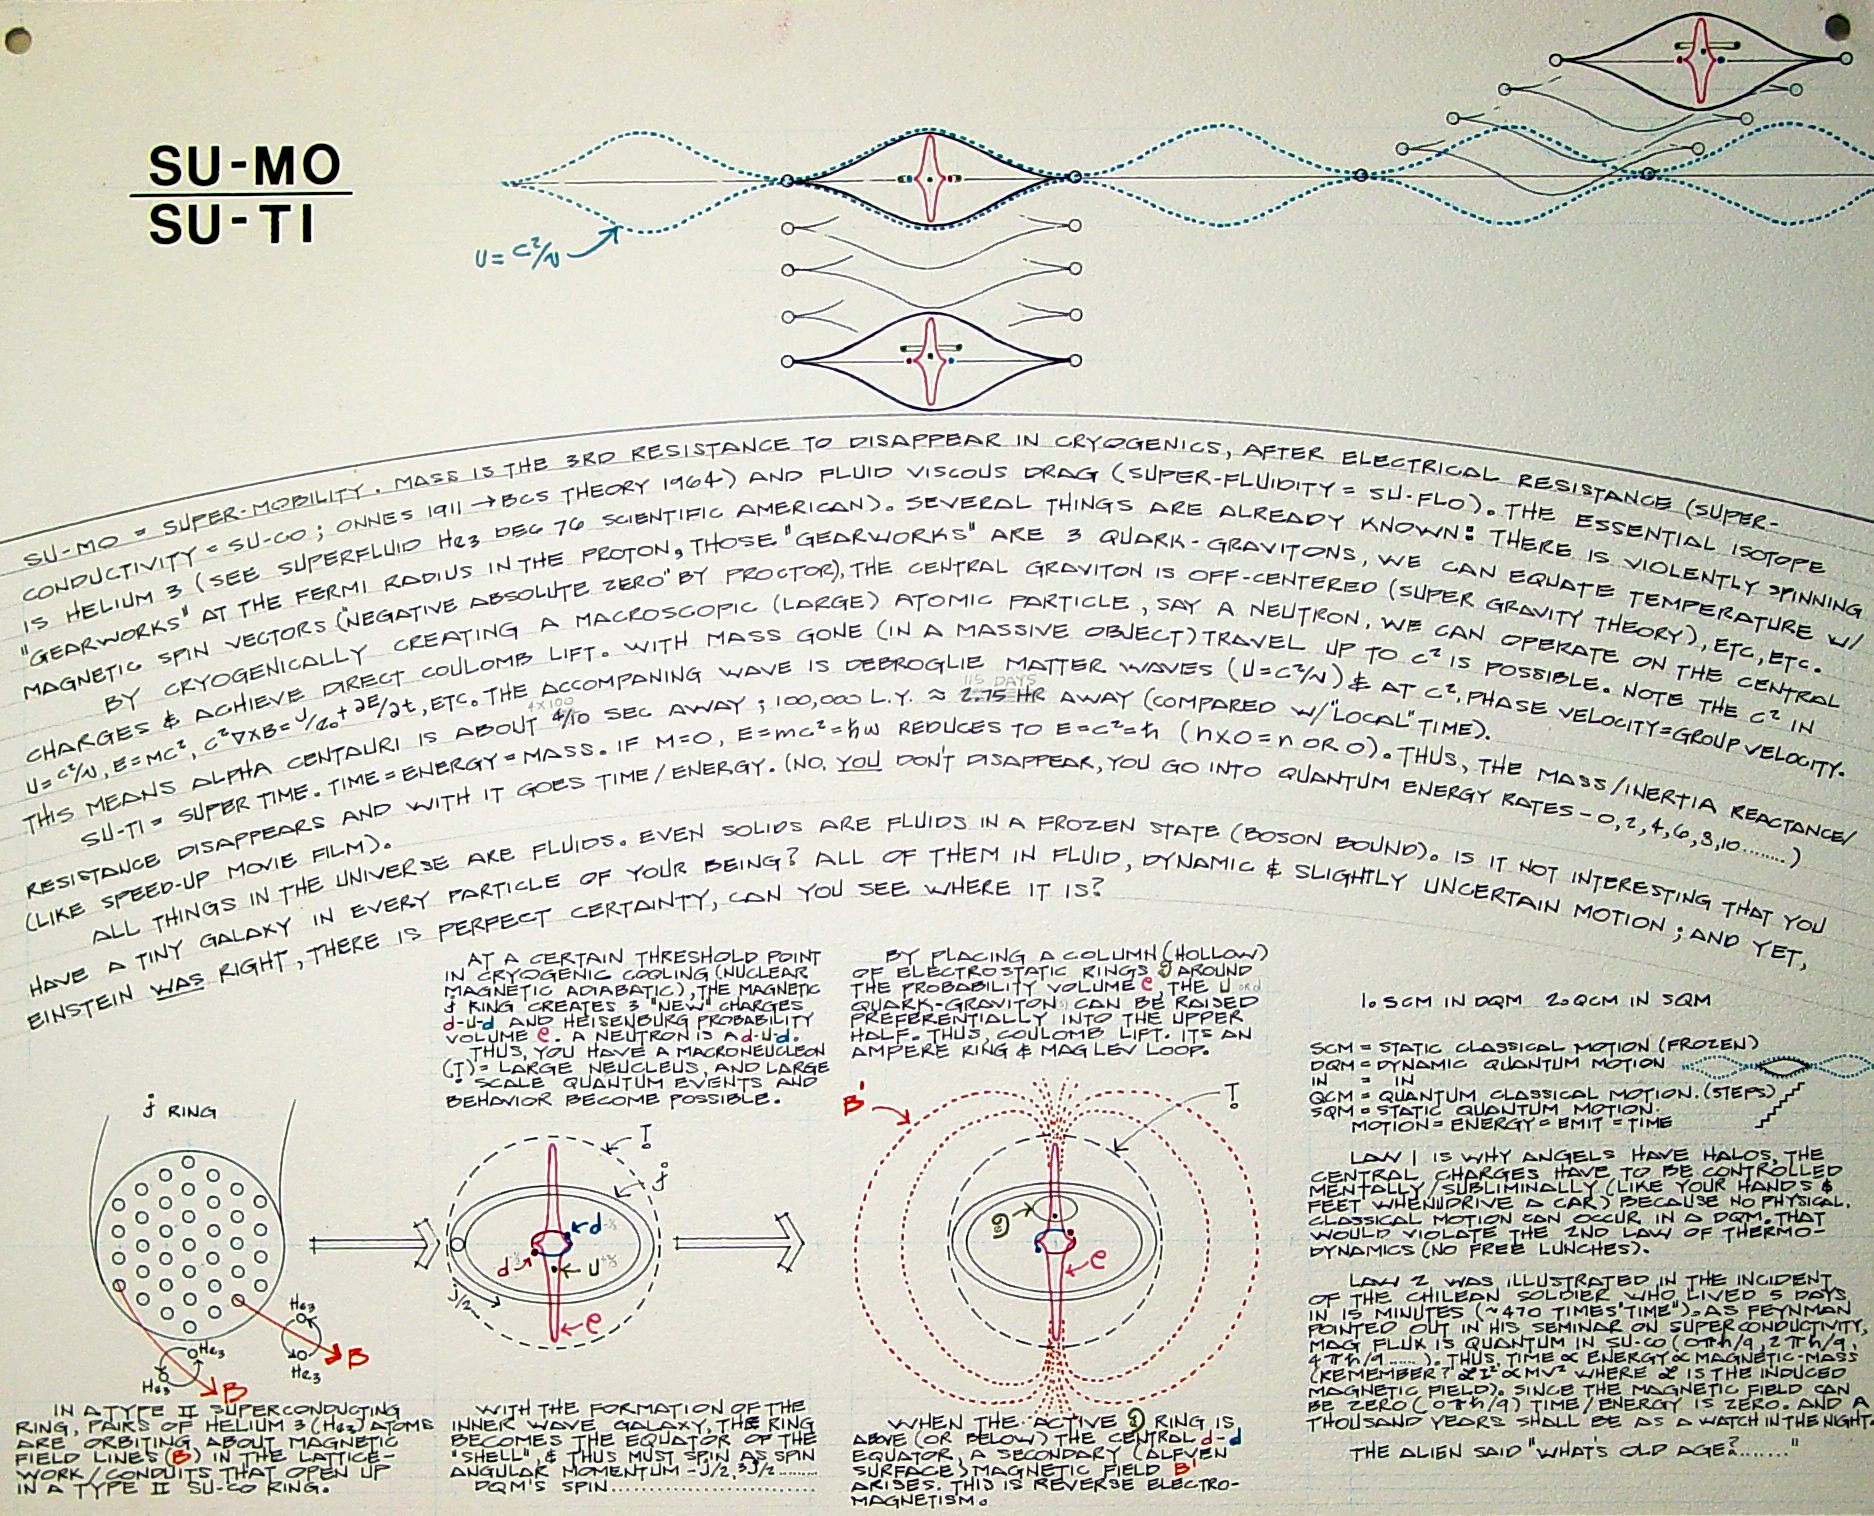 SU-MO
SU-TI
U = C²/v
SU-MO = SUPER-MOBILITY. MASS IS THE 3RD RESISTANCE TO DISAPPEAR IN CRYOGENICS, AFTER ELECTRICAL RESISTANCE (SUPER-
CONDUCTIVITY = SU-CO; ONNES 1911 → BCS THEORY 1964) AND FLUID VISCOUS DRAG (SUPER-FLUIDITY = SU-FLO). THE ESSENTIAL ISOTOPE
IS HELIUM 3 (SEE SUPERFLUID He3 DEC 76 SCIENTIFIC AMERICAN). SEVERAL THINGS ARE ALREADY KNOWN: THERE IS VIOLENTLY SPINNING
"GEARWORKS" AT THE FERMI RADIUS IN THE PROTON, THOSE "GEARWORKS" ARE 3 QUARK-GRAVITONS, WE CAN EQUATE TEMPERATURE W/
MAGNETIC SPIN VECTORS ("NEGATIVE ABSOLUTE ZERO" BY PROCTOR), THE CENTRAL GRAVITON IS OFF-CENTERED (SUPER GRAVITY THEORY), ETC, ETC.
BY CRYOGENICALLY CREATING A MACROSCOPIC (LARGE) ATOMIC PARTICLE, SAY A NEUTRON, WE CAN OPERATE ON THE CENTRAL
CHARGES & ACHIEVE DIRECT COULOMB LIFT. WITH MASS GONE (IN A MASSIVE OBJECT) TRAVEL UP TO C² IS POSSIBLE. NOTE THE C² IN
U=C²/v, E=MC², C²∇XB=J/ε₀+∂E/∂t, ETC. THE ACCOMPANING WAVE IS DEBROGLIE MATTER WAVES (U=C²/v) & AT C², PHASE VELOCITY=GROUP VELOCITY.
THIS MEANS ALPHA CENTAURI IS ABOUT 4/10 SEC AWAY; 100,000 L.Y. ≈ 2.75 HR AWAY (COMPARED W/"LOCAL" TIME).
4X100
115 DAYS
SU-TI = SUPER TIME. TIME = ENERGY = MASS. IF M=0, E=mc²=ħω REDUCES TO E=C²=ħ (n×0=n OR 0). THUS, THE MASS/INERTIA REACTANCE/
RESISTANCE DISAPPEARS AND WITH IT GOES TIME/ENERGY. (NO, YOU DON'T DISAPPEAR, YOU GO INTO QUANTUM ENERGY RATES - 0,2,4,6,8,10........)
(LIKE SPEED-UP MOVIE FILM).
ALL THINGS IN THE UNIVERSE ARE FLUIDS. EVEN SOLIDS ARE FLUIDS IN A FROZEN STATE (BOSON BOUND). IS IT NOT INTERESTING THAT YOU
HAVE A TINY GALAXY IN EVERY PARTICLE OF YOUR BEING? ALL OF THEM IN FLUID, DYNAMIC & SLIGHTLY UNCERTAIN MOTION; AND YET,
EINSTEIN WAS RIGHT, THERE IS PERFECT CERTAINTY, CAN YOU SEE WHERE IT IS?
AT A CERTAIN THRESHOLD POINT
IN CRYOGENIC COOLING (NUCLEAR
MAGNETIC ADIABATIC), THE MAGNETIC
j RING CREATES 3 "NEW" CHARGES
d-u-d AND HEISENBURG PROBABILITY
VOLUME e. A NEUTRON IS A d-u-d.
THUS, YOU HAVE A MACRONEUCLEON
(T) = LARGE NEUCLEUS, AND LARGE
SCALE QUANTUM EVENTS AND
BEHAVIOR BECOME POSSIBLE.
BY PLACING A COLUMN (HOLLOW)
OF ELECTROSTATIC RINGS g AROUND
THE PROBABILITY VOLUME e, THE U
QUARK-GRAVITON CAN BE RAISED
PREFERENTIALLY INTO THE UPPER
HALF. THUS, COULOMB LIFT. ITS AN
AMPERE RING & MAG LEV LOOP.
1. SCM IN DQM 2. QCM IN SQM
SCM = STATIC CLASSICAL MOTION (FROZEN)
DQM = DYNAMIC QUANTUM MOTION
IN = IN
QCM = QUANTUM CLASSICAL MOTION. (STEPS)
SQM = STATIC QUANTUM MOTION.
MOTION = ENERGY = EMIT = TIME
LAW 1 IS WHY ANGELS HAVE HALOS, THE
CENTRAL CHARGES HAVE TO BE CONTROLLED
MENTALLY/SUBLIMINALLY (LIKE YOUR HANDS &
FEET WHEN U DRIVE A CAR) BECAUSE NO PHYSICAL,
CLASSICAL MOTION CAN OCCUR IN A DQM. THAT
WOULD VIOLATE THE 2ND LAW OF THERMO-
DYNAMICS (NO FREE LUNCHES).
LAW 2 WAS ILLUSTRATED IN THE INCIDENT
OF THE CHILEAN SOLDIER WHO LIVED 5 DAYS
IN 15 MINUTES (~470 TIMES "TIME"). AS FEYNMAN
POINTED OUT IN HIS SEMINAR ON SUPERCONDUCTIVITY,
MAG FLUX IS QUANTUM IN SU-CO (0πħ/q, 2πħ/q,
4πħ/q......). THUS, TIME ∝ ENERGY ∝ MAGNETIC-MASS
(REMEMBER? ℒI² ∝ MV² WHERE ℒ IS THE INDUCED
MAGNETIC FIELD). SINCE THE MAGNETIC FIELD CAN
BE ZERO (0πħ/q) TIME/ENERGY IS ZERO. AND A
THOUSAND YEARS SHALL BE AS A WATCH IN THE NIGHT.
THE ALIEN SAID "WHAT'S OLD AGE?......."
j RING
He3
He3
B
He3
He3
B
T
j
d
d
u
e
J/2
B'
T
g
e
IN A TYPE II SUPERCONDUCTING
RING, PAIRS OF HELIUM 3 (He3) ATOMS
ARE ORBITING ABOUT MAGNETIC
FIELD LINES (B) IN THE LATTICE-
WORK/CONDUITS THAT OPEN UP
IN A TYPE II SU-CO RING.
WITH THE FORMATION OF THE
INNER WAVE GALAXY, THE RING
BECOMES THE EQUATOR OF THE
"SHELL", & THUS MUST SPIN AS SPIN
ANGULAR MOMENTUM - J/2, 3J/2 .........
DQM'S SPIN...........................
WHEN THE ACTIVE g RING IS
ABOVE (OR BELOW) THE CENTRAL d-d
EQUATOR, A SECONDARY (ALFVEN
SURFACE) MAGNETIC FIELD B'
ARISES. THIS IS REVERSE ELECTRO-
MAGNETISM.